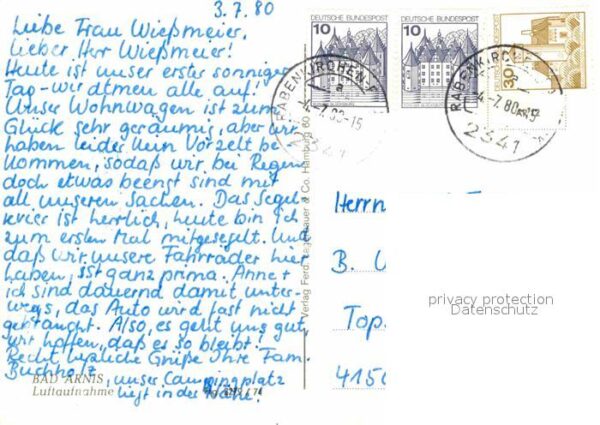 3.7.80
Liebe Frau Wießmeier,
Lieber Herr Wießmeier!
Heute ist unser erster sonniger
Tag - wir atmen alle auf!
Unser Wohnwagen ist zum
Glück sehr geräumig, aber wir
haben leider kein Vorzelt be-
kommen, sodaß wir bei Regen
doch etwas beengt sind mit
all unseren Sachen. Das Segel-
revier ist herrlich, heute bin ich
zum ersten Mal mitgesegelt. Und
daß wir unsere Fahrräder hier
haben, ist ganz prima. Anne +
ich sind dauernd damit unter-
wegs, das Auto wird fast nicht
gebraucht. Also, es geht uns gut,
wir hoffen, daß es so bleibt!
Recht herzliche Grüße Ihre Fam.
Buchholz
unser Campingplatz
liegt in der Nähe!
BAD ARNIS
Luftaufnahme
Verlag Ferd. Lagerbauer & Co. Hamburg
DEUTSCHE BUNDESPOST
10
DEUTSCHE BUNDESPOST
10
DEUTSCHE BUNDESPOST
30
RABENKIRCHEN-F
-4.-7.80-15
2341
RABENKIRCHEN-F
-4.-7.80-15
2341
Herrn
B.
Top.
4150
privacy protection
Datenschutz